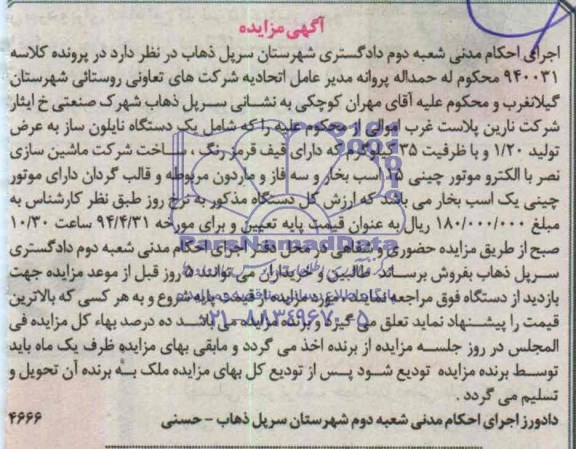 آگهی مزایده
اجرای احکام مدنی شعبه دوم دادگستری شهرستان سرپل ذهاب در نظر دارد در پرونده کلاسه
۹۴۰۰۳۱ محکوم له حمداله پروانه مدیر عامل اتحادیه شرکت های تعاونی روستائی شهرستان
گیلانغرب و محکوم علیه آقای مهران کوچکی به نشانی سرپل ذهاب شهرک صنعتی خ ایثار
شرکت نارین پلاست غرب اموالی از محکوم علیه را که شامل یک دستگاه نایلون ساز به عرض
تولید ۱/۲۰ و با ظرفیت ۳۵ کیلوگرم که دارای قیف قرمز رنگ ، ساخت شرکت ماشین سازی
نصر با الکترو موتور چینی ۱۵ اسب بخار و سه فاز و ماردون مربوطه و قالب گردان دارای موتور
چینی یک اسب بخار می باشد که ارزش کل دستگاه مذکور به نرخ روز طبق نظر کارشناس به
مبلغ ۱۸۰/۰۰۰/۰۰۰ ریال به عنوان قیمت پایه تعیین و برای مورخه ۹۴/۴/۳۱ ساعت ۱۰/۳۰
صبح از طریق مزایده حضوری و شفاهی در محل دفتر اجرای احکام مدنی شعبه دوم دادگستری
سرپل ذهاب بفروش برساند. طالبین و خریداران می توانند ۵ روز قبل از موعد مزایده جهت
بازدید از دستگاه فوق مراجعه نمایند. مورد مزایده از قیمت پایه شروع و به هر کسی که بالاترین
قیمت را پیشنهاد نماید تعلق می گیرد و برنده مزایده می باشد ده درصد بهاء کل مزایده فی
المجلس در روز جلسه مزایده از برنده اخذ می گردد و مابقی بهای مزایده ظرف یک ماه باید
توسط برنده مزایده تودیع شود پس از تودیع کل بهای مزایده ملک به برنده آن تحویل و
تسلیم می گردد .
دادورز اجرای احکام مدنی شعبه دوم شهرستان سرپل ذهاب – حسنی
۴۶۶۶
ParsNamadData
۰۲۱-۸۸۳۴۹۶۷۰-۵